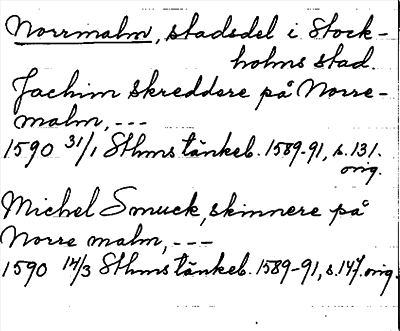 Norrmalm, stadsdel i Stock-
holms stad.
Jachim skreddere på Norre-
malm, ---
1590 31/1 Sthms tänkeb. 1589-91, s. 131.
orig.
Michel Smuck, skinnere på
Norre malm, ---
1590 14/3 Sthms tänkeb. 1589-91, s. 147. orig.